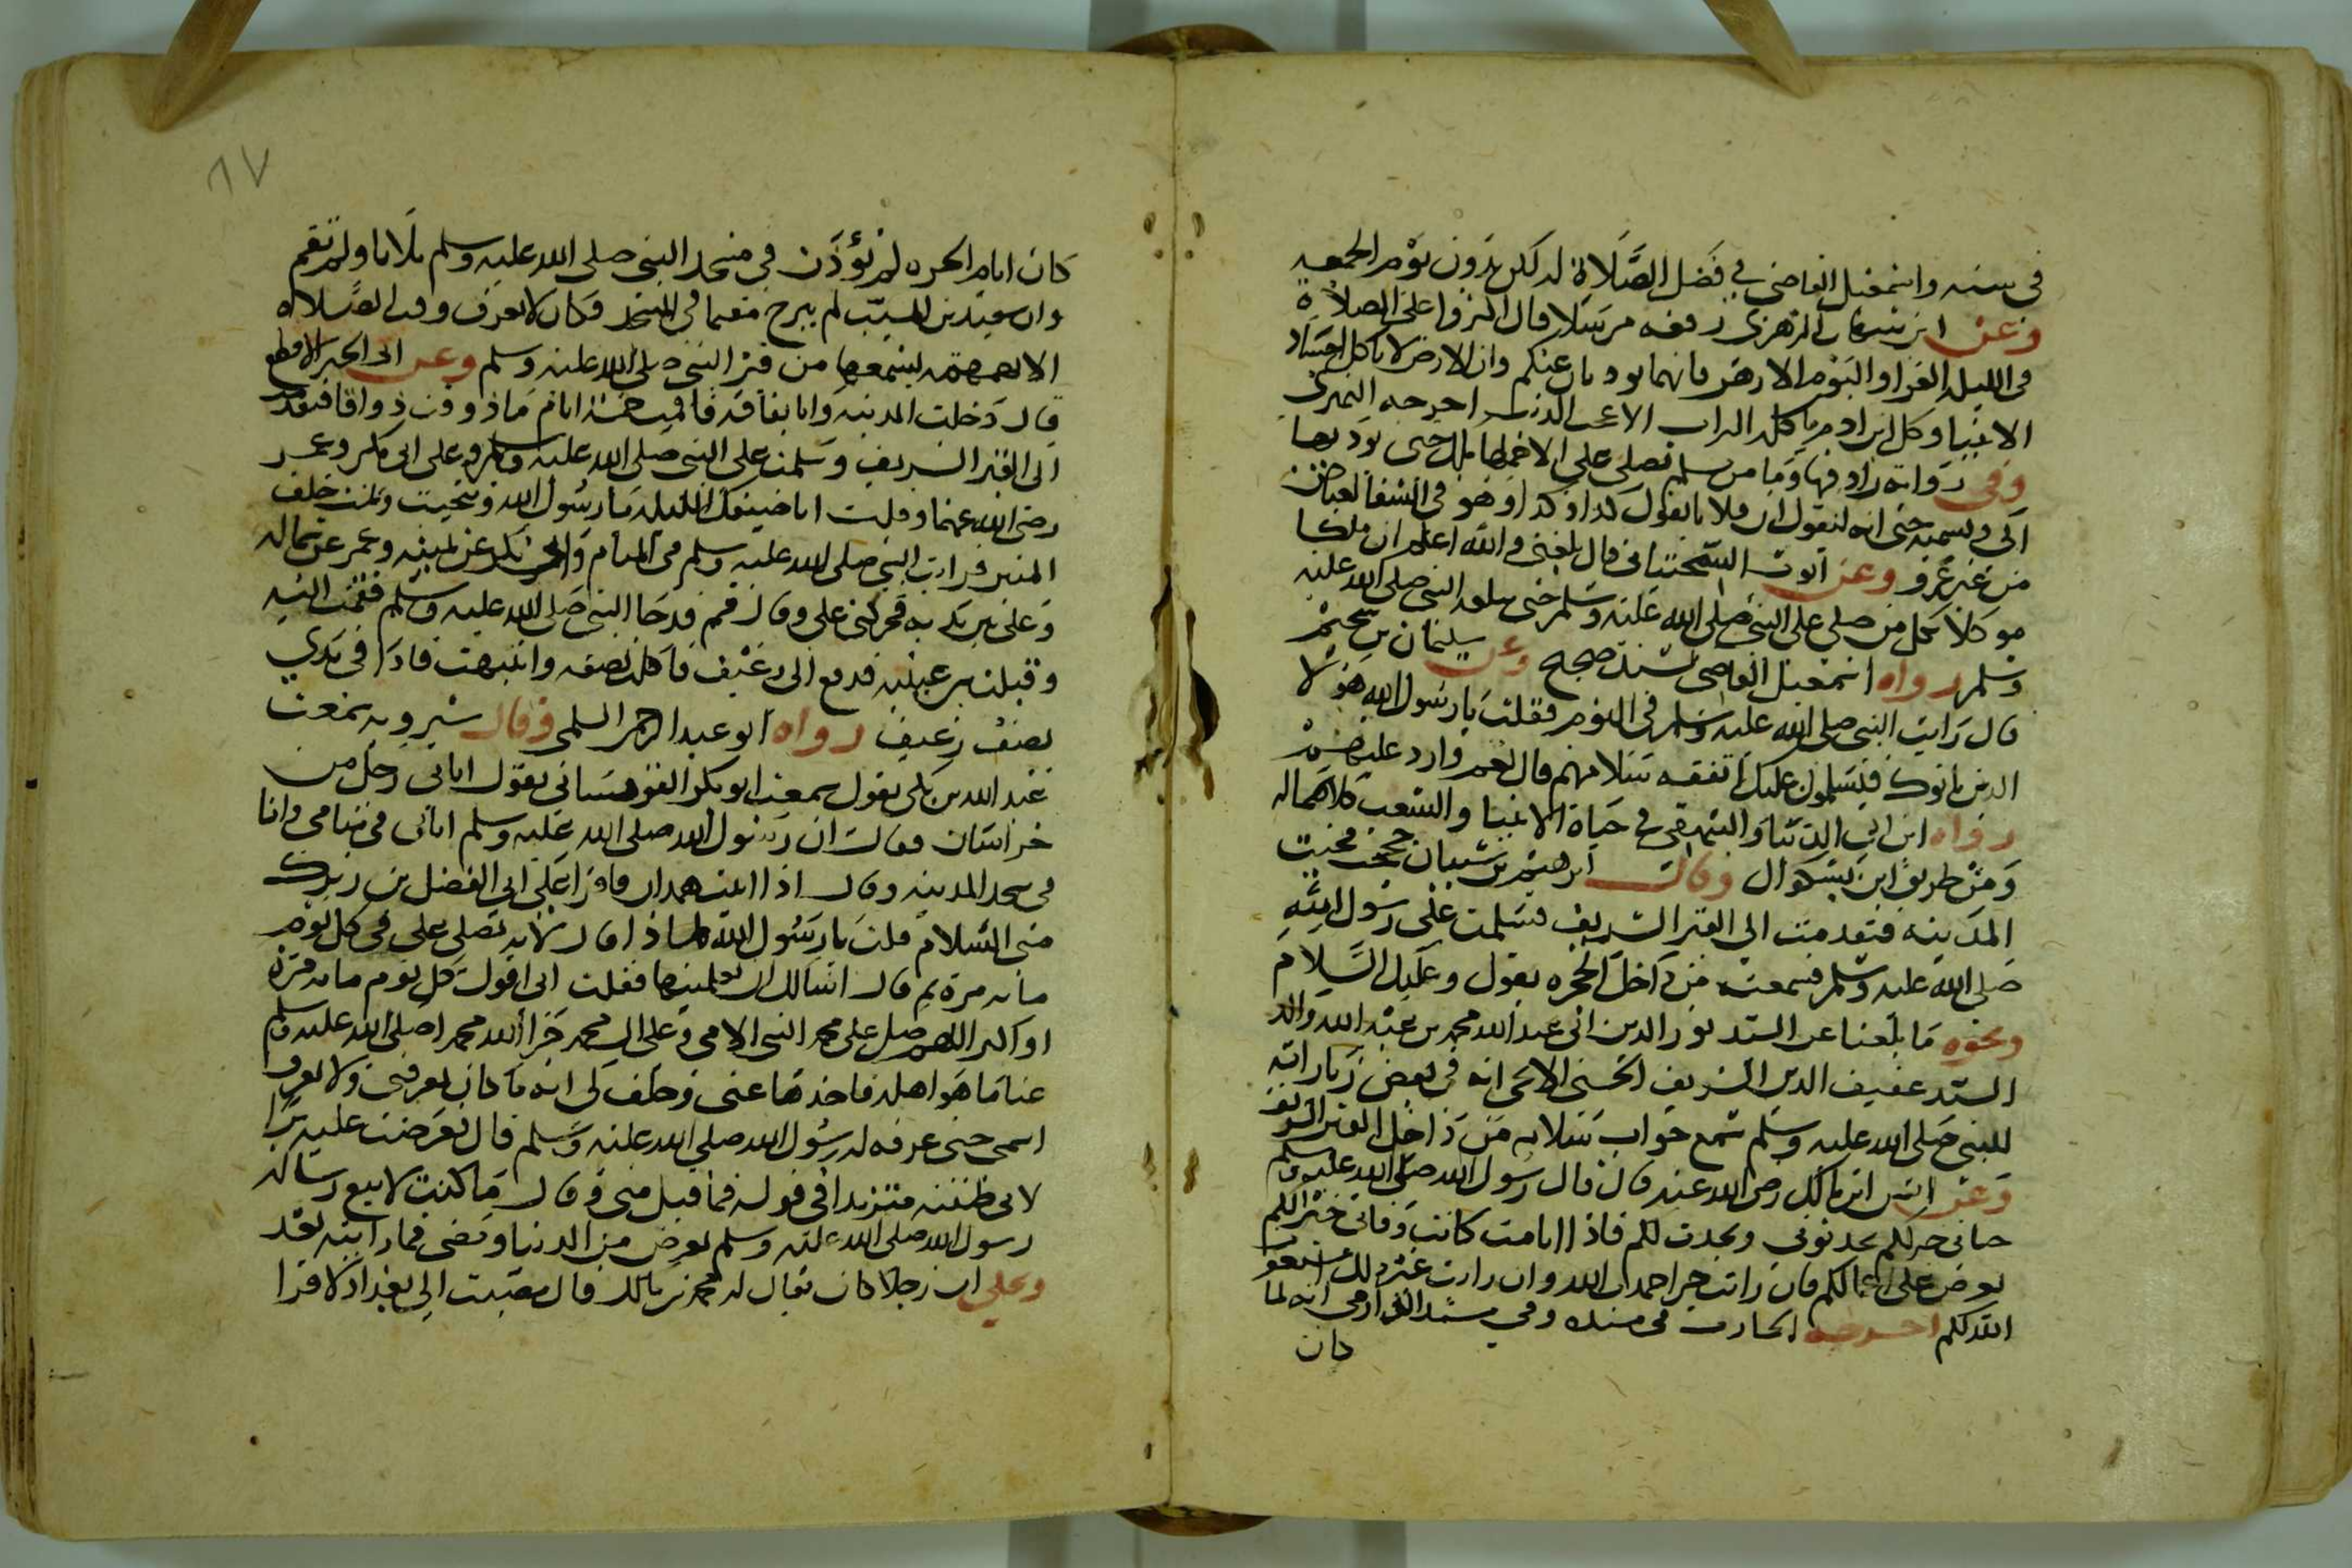 في سننه واسمعيل القاضي في فضل الصلاة له لكن بدون يوم الجمعه
وعن ابن شهاب الزهري رفعه مرسلا قال اكثروا علي الصلاة
في الليله الغرا واليوم الازهر فانهما يوديان عنكم وان الارض لا تاكل اجساد
الانبيا وكل ابن ادم ياكله التراب الا عجب الذنب اخرجه النميري
وفي رواية زاد فيها وما من مسلم يصلي علي الا حملها ملك حتى يوديها
الي ويسميه حتى انه ليقول ان فلانا يقول كذا وكذا وهو في الشفا لعياض
من غير عزو وعن ايوب السختياني قال بلغني والله اعلم ان ملكا
موكلا بكل من صلى على النبي صلى الله عليه وسلم حتى يبلغه النبي صلى الله عليه
وسلم رواه اسمعيل القاضي بسند صحيح وعن سليمان بن سحيم
قال رايت النبي صلى الله عليه وسلم في النوم فقلت يا رسول الله هولا
الذين ياتونك فيسلمون عليك اتفقه سلامهم قال نعم وارد عليهم
رواه ابن ابي الدنيا والبيهقي في حياة الانبيا والشعب كلاهما له
ومن طريقه ابن بشكوال وقال ابرهيم بن شيبان حججت فجيت
المدينه فتقدمت الي القبر الشريف فسلمت على رسول الله
صلى الله عليه وسلم فسمعت من داخل الحجره يقول وعليك السلام
ونحوه ما بلغنا عن السيد نور الدين ابي عبد الله محمد بن عبد الله والد
السيد عفيف الدين الشريف الحسني الايجي انه في بعض زياراته
للنبي صلى الله عليه وسلم سمع جواب سلامه من داخل القبر الشريف
وعن انس ابن مالك رضي الله عنه قال قال رسول الله صلى الله عليه وسلم
حياتي خير لكم تحدثوني ونحدث لكم فاذا انا مت كانت وفاتي خير الكم
تعرض علي اعمالكم فان رايت خيرا حمدت الله وان رايت غير ذلك استغفرت
الله لكم اخرجه الحارث في مسنده وفي مسند الدارمي انه لما
كان
٨٧
كان ايام الحره لم يؤذن في مسجد النبي صلى الله عليه وسلم ثلاثا ولم تقم
وان سعيد بن المسيب لم يبرح مقيما في المسجد وكان لا يعرف وقت الصلاه
الا بهمهمة يسمعها من قبر النبي صلى الله عليه وسلم وعن ابي الخير الاقطع
قال دخلت المدينه وانا بفاقه فاقمت خمسة ايام ما ذقت ذواقا فتقدمت
الى القبر الشريف وسلمت على النبي صلى الله عليه وسلم وعلى ابي بكر وعمر
رضي الله عنهما وقلت انا ضيفك الليله يا رسول الله وتنحيت ونمت خلف
المنبر فرايت النبي صلى الله عليه وسلم في المنام وابو بكر عن يمينه وعمر عن شماله
وعلي بين يديه فحركني علي وقال قم قد جا النبي صلى الله عليه وسلم فقمت اليه
وقبلت بين عينيه فدفع الي رغيف فاكلت نصفه وانتبهت فاذا في يدي
نصف رغيف رواه ابو عبد الرحمن السلمي وقال شيرويه سمعت
عبد الله بن مكي يقول سمعت ابو بكر الفضل القومساني يقول اتاني رجل من
خراسان فقال ان رسول الله صلى الله عليه وسلم اتاني في منامي وانا
في مسجد المدينه وقال اذا اتيت همدان فاقرا على ابي الفضل بن زيرك
مني السلام قلت يا رسول الله لماذا قال لانه يصلي علي في كل يوم
مايه مرة ثم قال اسالك ان تعلمنيها فقلت اني اقول كل يوم مايه مرة
او اكثر اللهم صل على محمد النبي الامي وعلى ال محمد جزا الله محمدا صلى الله عليه وسلم
عنا ما هو اهله فاخذها عني وحلف لي انه ما كان يعرفني ولا يعرف
اسمي حتى عرفه له رسول الله صلى الله عليه وسلم قال فعرضت عليه برا
لاني ظننته متزيدا في قوله فما قبل مني وقال ما كنت لابيع رسالة
رسول الله صلى الله عليه وسلم بعرض من الدنيا ومضى فما رايته بعد
وحكي ان رجلا كان يقال له محمد بن مالك قال مضيت الي بغداد لاقرا